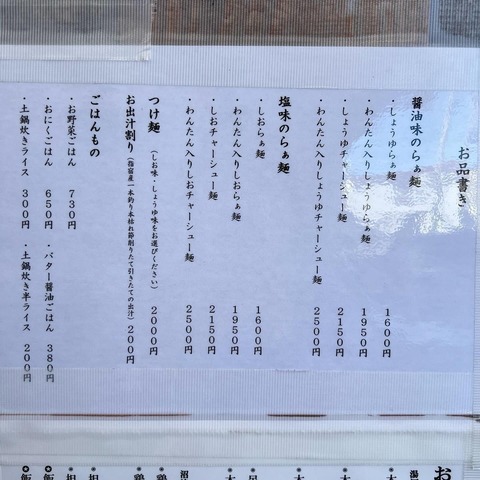 お品書き
醤油味のらぁ麺
・しょうゆらぁ麺 1600円
・わんたん入りしょうゆらぁ麺 1950円
・しょうゆチャーシュー麺 2150円
・わんたん入りしょうゆチャーシュー麺 2500円
塩味のらぁ麺
・しおらぁ麺 1600円
・わんたん入りしおらぁ麺 1950円
・しおチャーシュー麺 2150円
・わんたん入りしおチャーシュー麺 2500円
つけ麺 (しお味・しょうゆ味をお選びください) 2000円
お出汁割り (指宿産一本釣り本枯れ節削りたて引きたての出汁) 200円
ごはんもの
・お野菜ごはん 730円
・おにくごはん 650円 ・バター醤油ごはん 380円
・土鍋炊きライス 300円 ・土鍋炊き半ライス 200円